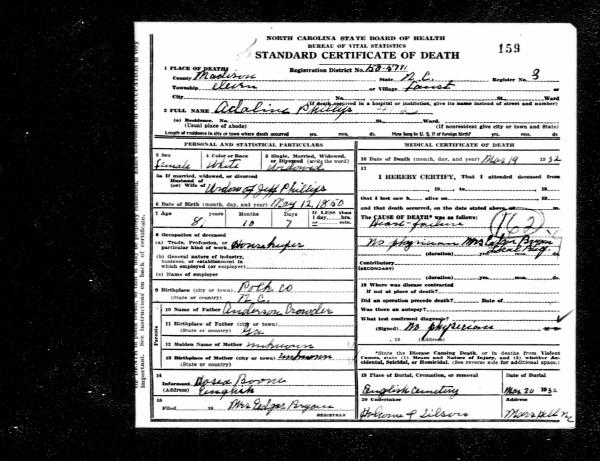 NORTH CAROLINA STATE BOARD OF HEALTH
BUREAU OF VITAL STATISTICS
159
STANDARD CERTIFICATE OF DEATH
1 PLACE OF DEATH Registration District No.
County Madison State N.C. Register No. 3
Township or Village Faust
City No. St. Ward
(If death occurred in a hospital or institution, give its name instead of street and number)
2 FULL NAME Adaline Phillips
(a) Residence. No. St. Ward.
(Usual place of abode) (If nonresident give city or town and State)
Length of residence in city or town where death occurred yrs. mos. ds. How long in U. S. if of foreign birth? yrs. mos. ds.
PERSONAL AND STATISTICAL PARTICULARS
3 Sex 4 Color or Race 5 Single, Married, Widowed, or Divorced (write the word)
Female White Widowed
5a If married, widowed, or divorced
Husband of
(or) Wife of Widow of Jeff Phillips
6 Date of Birth (month, day, and year) May 12, 1850
7 Age Years Months Days If LESS than 1 day, hrs. or min.
81 10 7
8 Occupation of deceased
(a) Trade, Profession, or particular kind of work Housekeeper
(b) General nature of industry, business, or establishment in which employed (or employer)
(c) Name of employer
9 Birthplace (city or town) Polk Co
(State or country) N.C.
Parents
10 Name of Father Anderson Crowder
11 Birthplace of Father (city or town)
(State or country) Ga
12 Maiden Name of Mother unknown
13 Birthplace of Mother (city or town) unknown
(State or country)
14
Informant Hosea Boone
(Address) English
15
Filed 19 Mrs Edgar Bryan
REGISTRAR
MEDICAL CERTIFICATE OF DEATH
16 Date of Death (month, day, and year) Mar 19 1932
17
I HEREBY CERTIFY, That I attended deceased from
19 , to 19
that I last saw h alive on 19
and that death occurred, on the date stated above, at m.
The CAUSE OF DEATH* was as follows:
Heart failure
162
No physician Mrs Edgar Bryan
(duration) yrs. mos. ds.
Contributory
(SECONDARY)
(duration) yrs. mos. ds.
18 Where was disease contracted
if not at place of death?
Did an operation precede death? Date of
Was there an autopsy?
What test confirmed diagnosis?
(Signed) No physician
, 19 (Address)
*State the Disease Causing Death, or in deaths from Violent Causes, state (1) Means and Nature of Injury, and (2) whether Accidental, Suicidal, or Homicidal. (See reverse side for additional space.)
19 Place of Burial, Cremation, or removal Date of Burial
English Cemetery Mar 20 1932
20 Undertaker Address
Holcome & Tilson Marshall N.C.
important. See instructions on back of certificate.